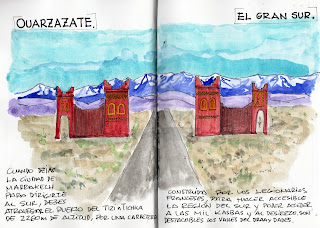 OUARZAZATE.
EL GRAN SUR.
CUANDO DEJAS
LA CIUDAD DE
MARRAKECH
PARA DIRIGIRTE
AL SUR, DEBES
ATRAVESAR EL PUERTO DEL TIZI N TICHKA
DE 2260M DE ALTITUD, POR UNA CARRETERA
CONSTRUIDA POR LOS LEGIONARIOS
FRANCESES, PARA HACER ACCESIBLE
LA REGIÓN DEL SUR Y PODER ACCEDER
A LAS MIL KASBAS Y AL DESIERTO, SON
DESTACABLES LOS VALLES DEL DRAA Y DADES.